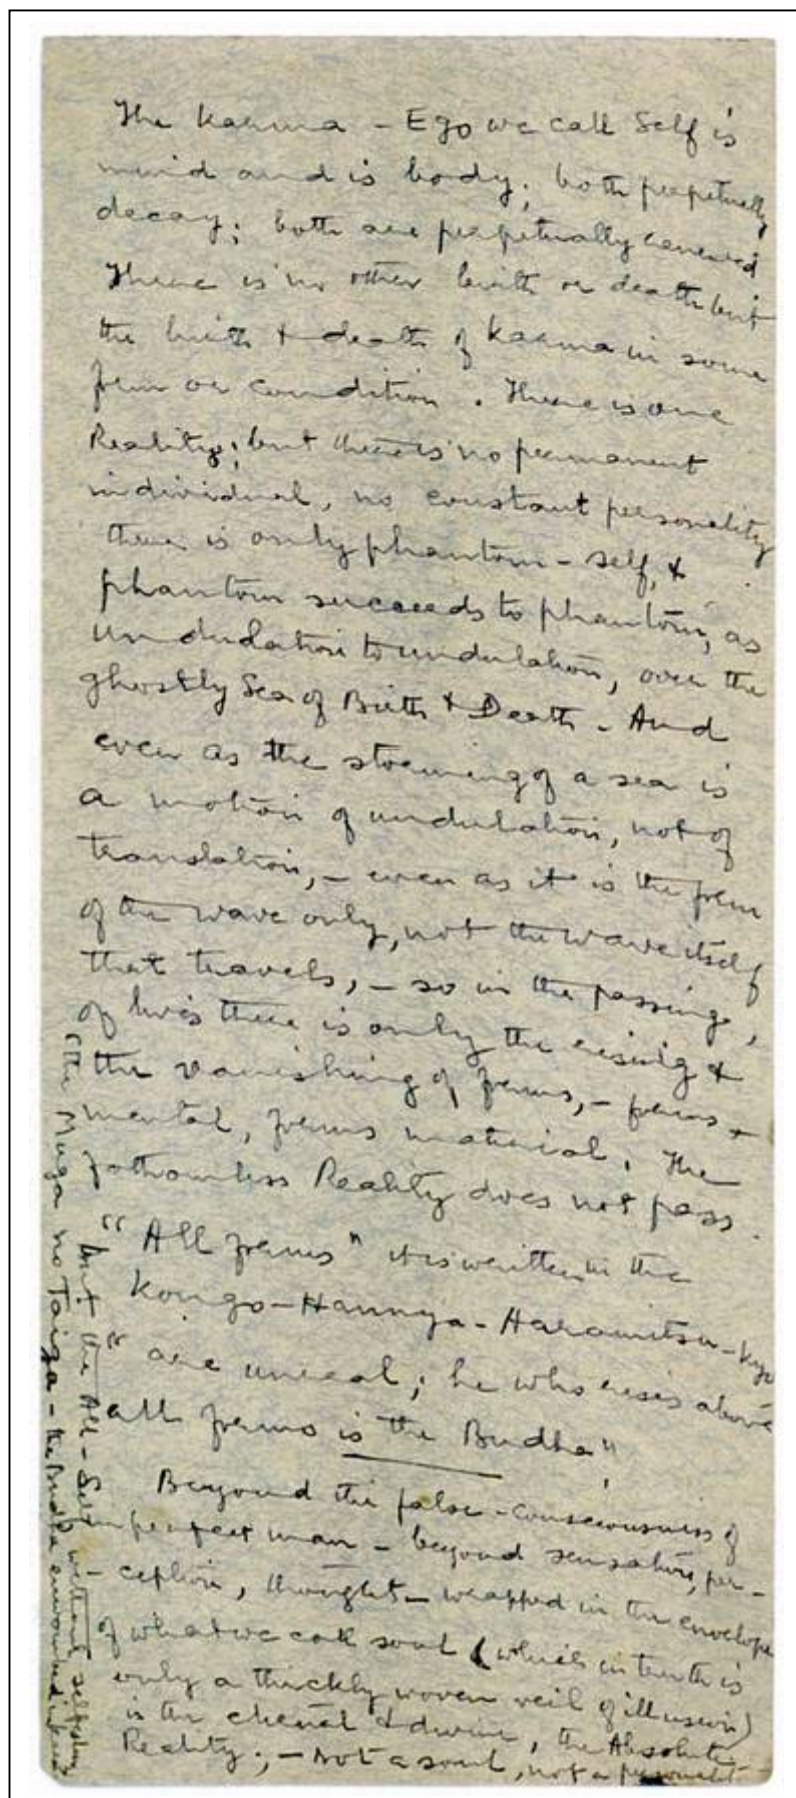 The Karma - Ego we call Self is
mind and is body; both perpetually
decay; both are perpetually renewed
There is no other birth or death but
the birth & death of Karma in some
form or condition. There is one
Reality; but there is no permanent
individual, no constant personality
there is only phantom - self, &
phantom succeeds to phantom, as
undulation to undulation, over the
ghostly Sea of Birth & Death - And
even as the storming of a sea is
a motion of undulation, not of
translation, - even as it is the form
of the wave only, not the wave itself
that travels, - so in the passing
of lives there is only the rising &
the vanishing of forms, - forms
mental, forms material. The
fathomless Reality does not pass.
"All forms" it is written in the
Kongo-Hannya-Haramitsu-Kyo
"are unreal; he who rises above
all forms is the Budha"
Beyond the false-consciousness of
imperfect man - beyond sensation, per-
ception, thought - wrapped in the envelope
of what we call soul (which in truth is
only a thickly woven veil of illusion)
is the eternal & divine, the Absolute
Reality; - not a soul, not a personality
but the All-Self without selfishness
"the Muga no Taiga - the Budha enwombed in